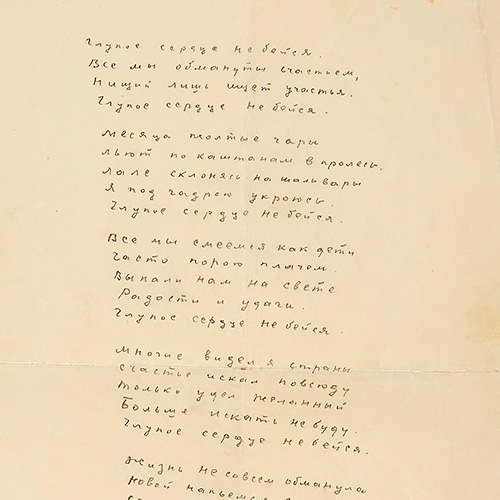 Глупое сердце не бейся.
Все мы обмануты счастьем,
Нищий лишь ищет участья.
Глупое сердце не бейся.
Месяца желтые чары
льют по каштанам в пролесь.
Лале склонясь на шальвары
Я под чадрою укроюсь.
Глупое сердце не бейся.
Все мы смеемся как дети
Часто порою плачем.
Выпали нам на свете
Радости и удачи.
Глупое сердце не бейся.
Многие видел я страны
счастье искал повсюду
только удел желанный
Больше искать не буду.
Глупое сердце не бейся.
Жизнь не совсем обманула
новой напьемся